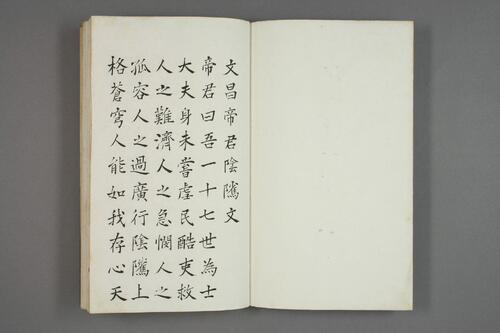 文昌帝君陰隲文
帝君曰吾一十七世為士
大夫身未嘗虐民酷吏救
人之難濟人之急憫人之
孤容人之過廣行陰隲上
格蒼穹人能如我存心天